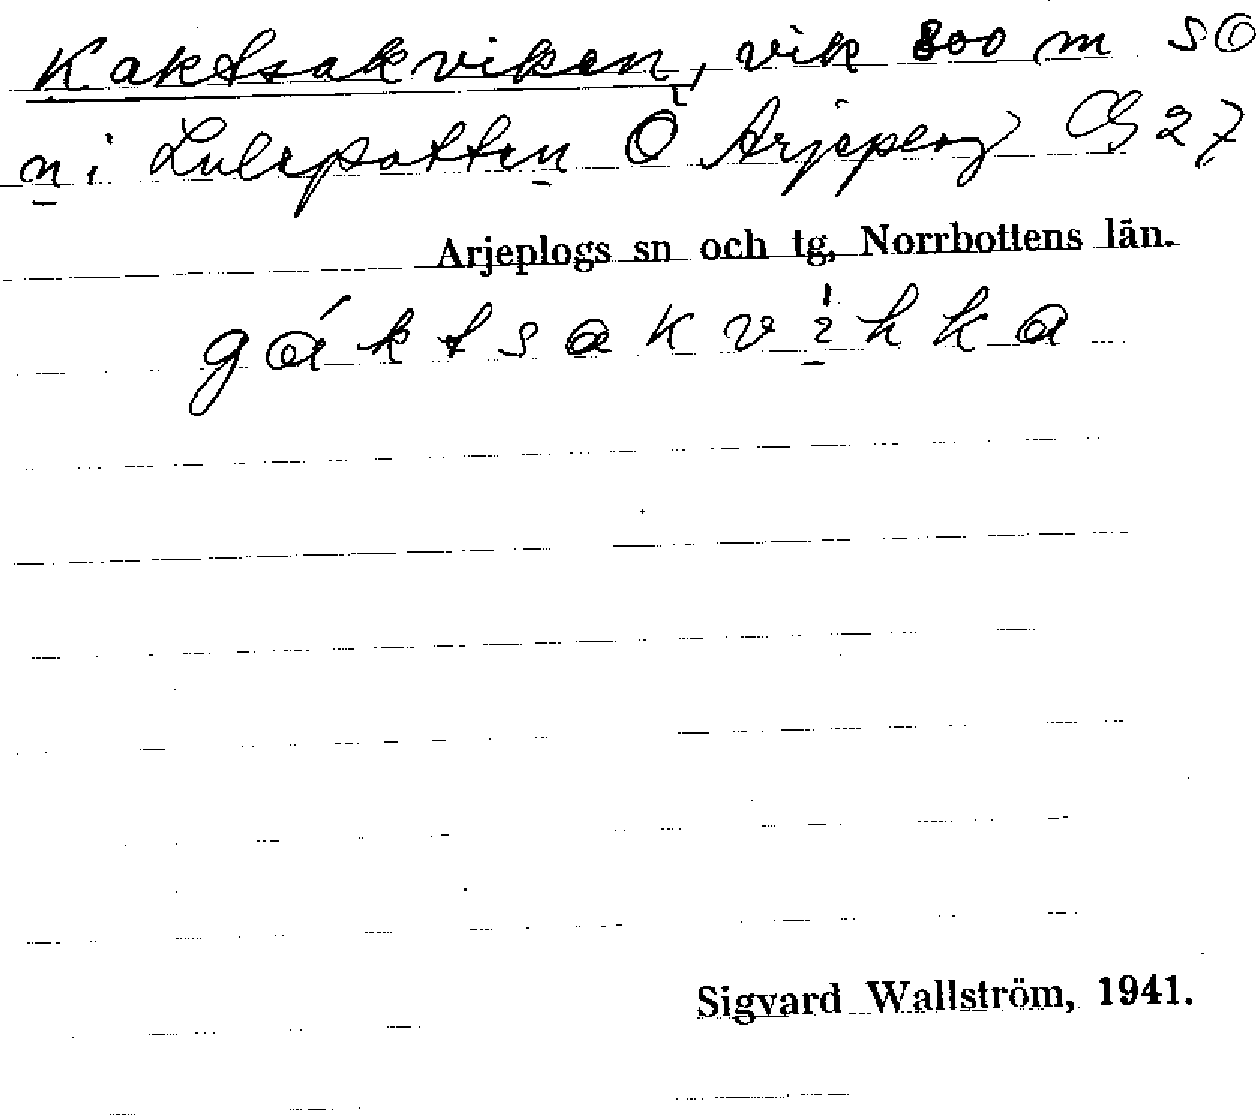 Kaktsakviken, vik 800 m SO
n i Lulepotten Ö Arjeplog G 27
Arjeplogs sn och tg, Norrbottens län.
gáktsakvihka
Sigvard Wallström, 1941.